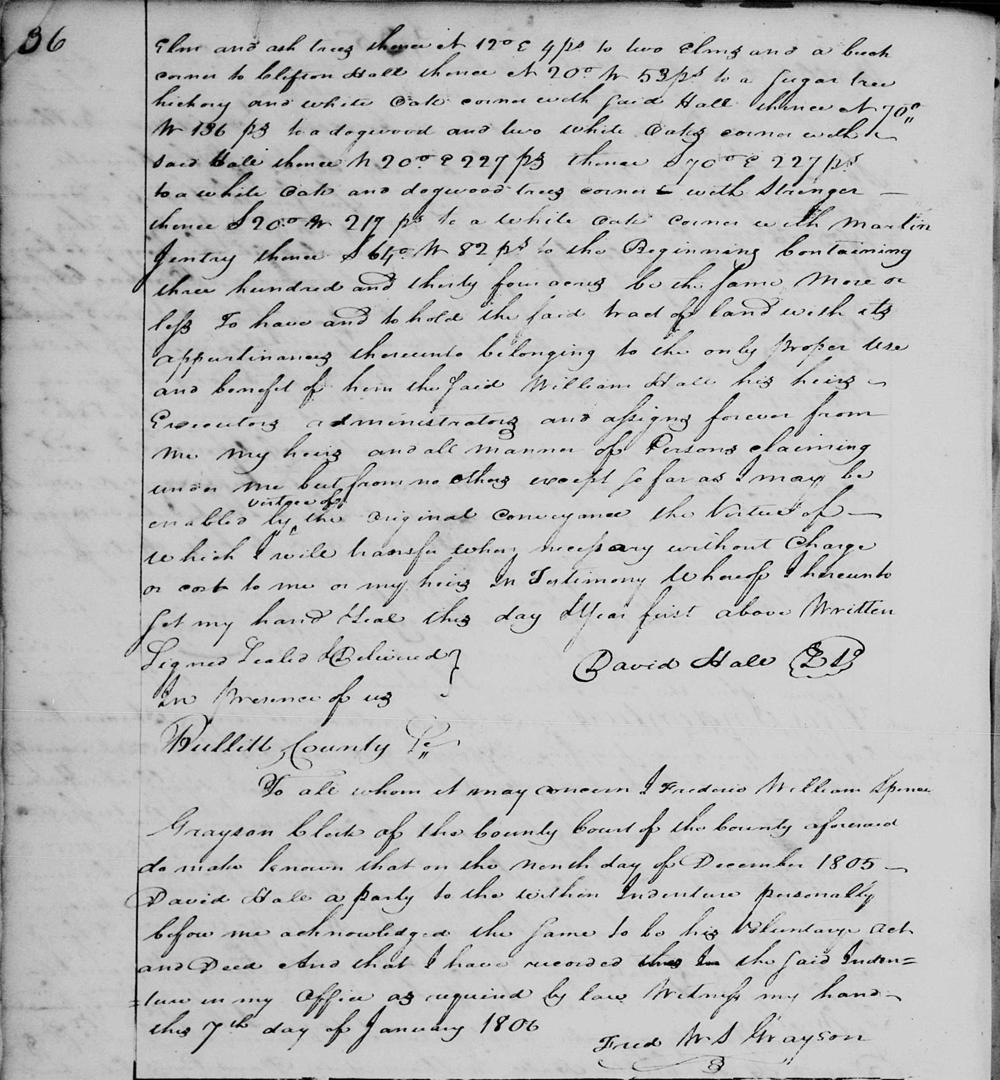 36
Elm and ash trees thence N 12° E 4 ps to two Elms and a beech
corner to Clifton Hall thence N 20° W 53 ps to a Sugar tree
hickory and white Oak corner with said Hall thence N 70°
W 186 ps to a dogwood and two white Oaks corner with
said Hall thence N 20° E 227 ps thence S 70° E 227 ps
to a white Oak and dogwood trees corner with Stringer
thence S 20° W 217 ps to a white Oak corner with Martin
Jentry thence S 64° W 82 ps to the Beginning Containing
three hundred and thirty four acres be the same More or
less To have and to hold the said tract of land with its
appurtinances thereunto belonging to the only Proper Use
and benefit of him the said William Hall his heirs
Executors administrators and assigns forever from
me my heirs and all manner of Persons claiming
under me but from no others except so far as I may be
virtue of
enabled by the original conveyance the Virtue of
which I will transfer when necessary without Charge
or cost to me or my heirs In Testimony Whereof I hereunto
set my hand & Seal this day & Year first above Written
Signed Sealed & Delivered } David Hall
In Presence of us
Bullitt County Sc
To all whom it may concern I Frederic William Spence
Grayson Clerk of the County Court of the County aforesaid
do make known that on the Nonth day of December 1805
David Hall a party to the within Indenture personally
before me acknowledged the same to be his Voluntary act
and Deed And that I have recorded the said Inden=
=ture in my Office as required by law Witness my hand
this 7th day of January 1806
Fred W S Grayson